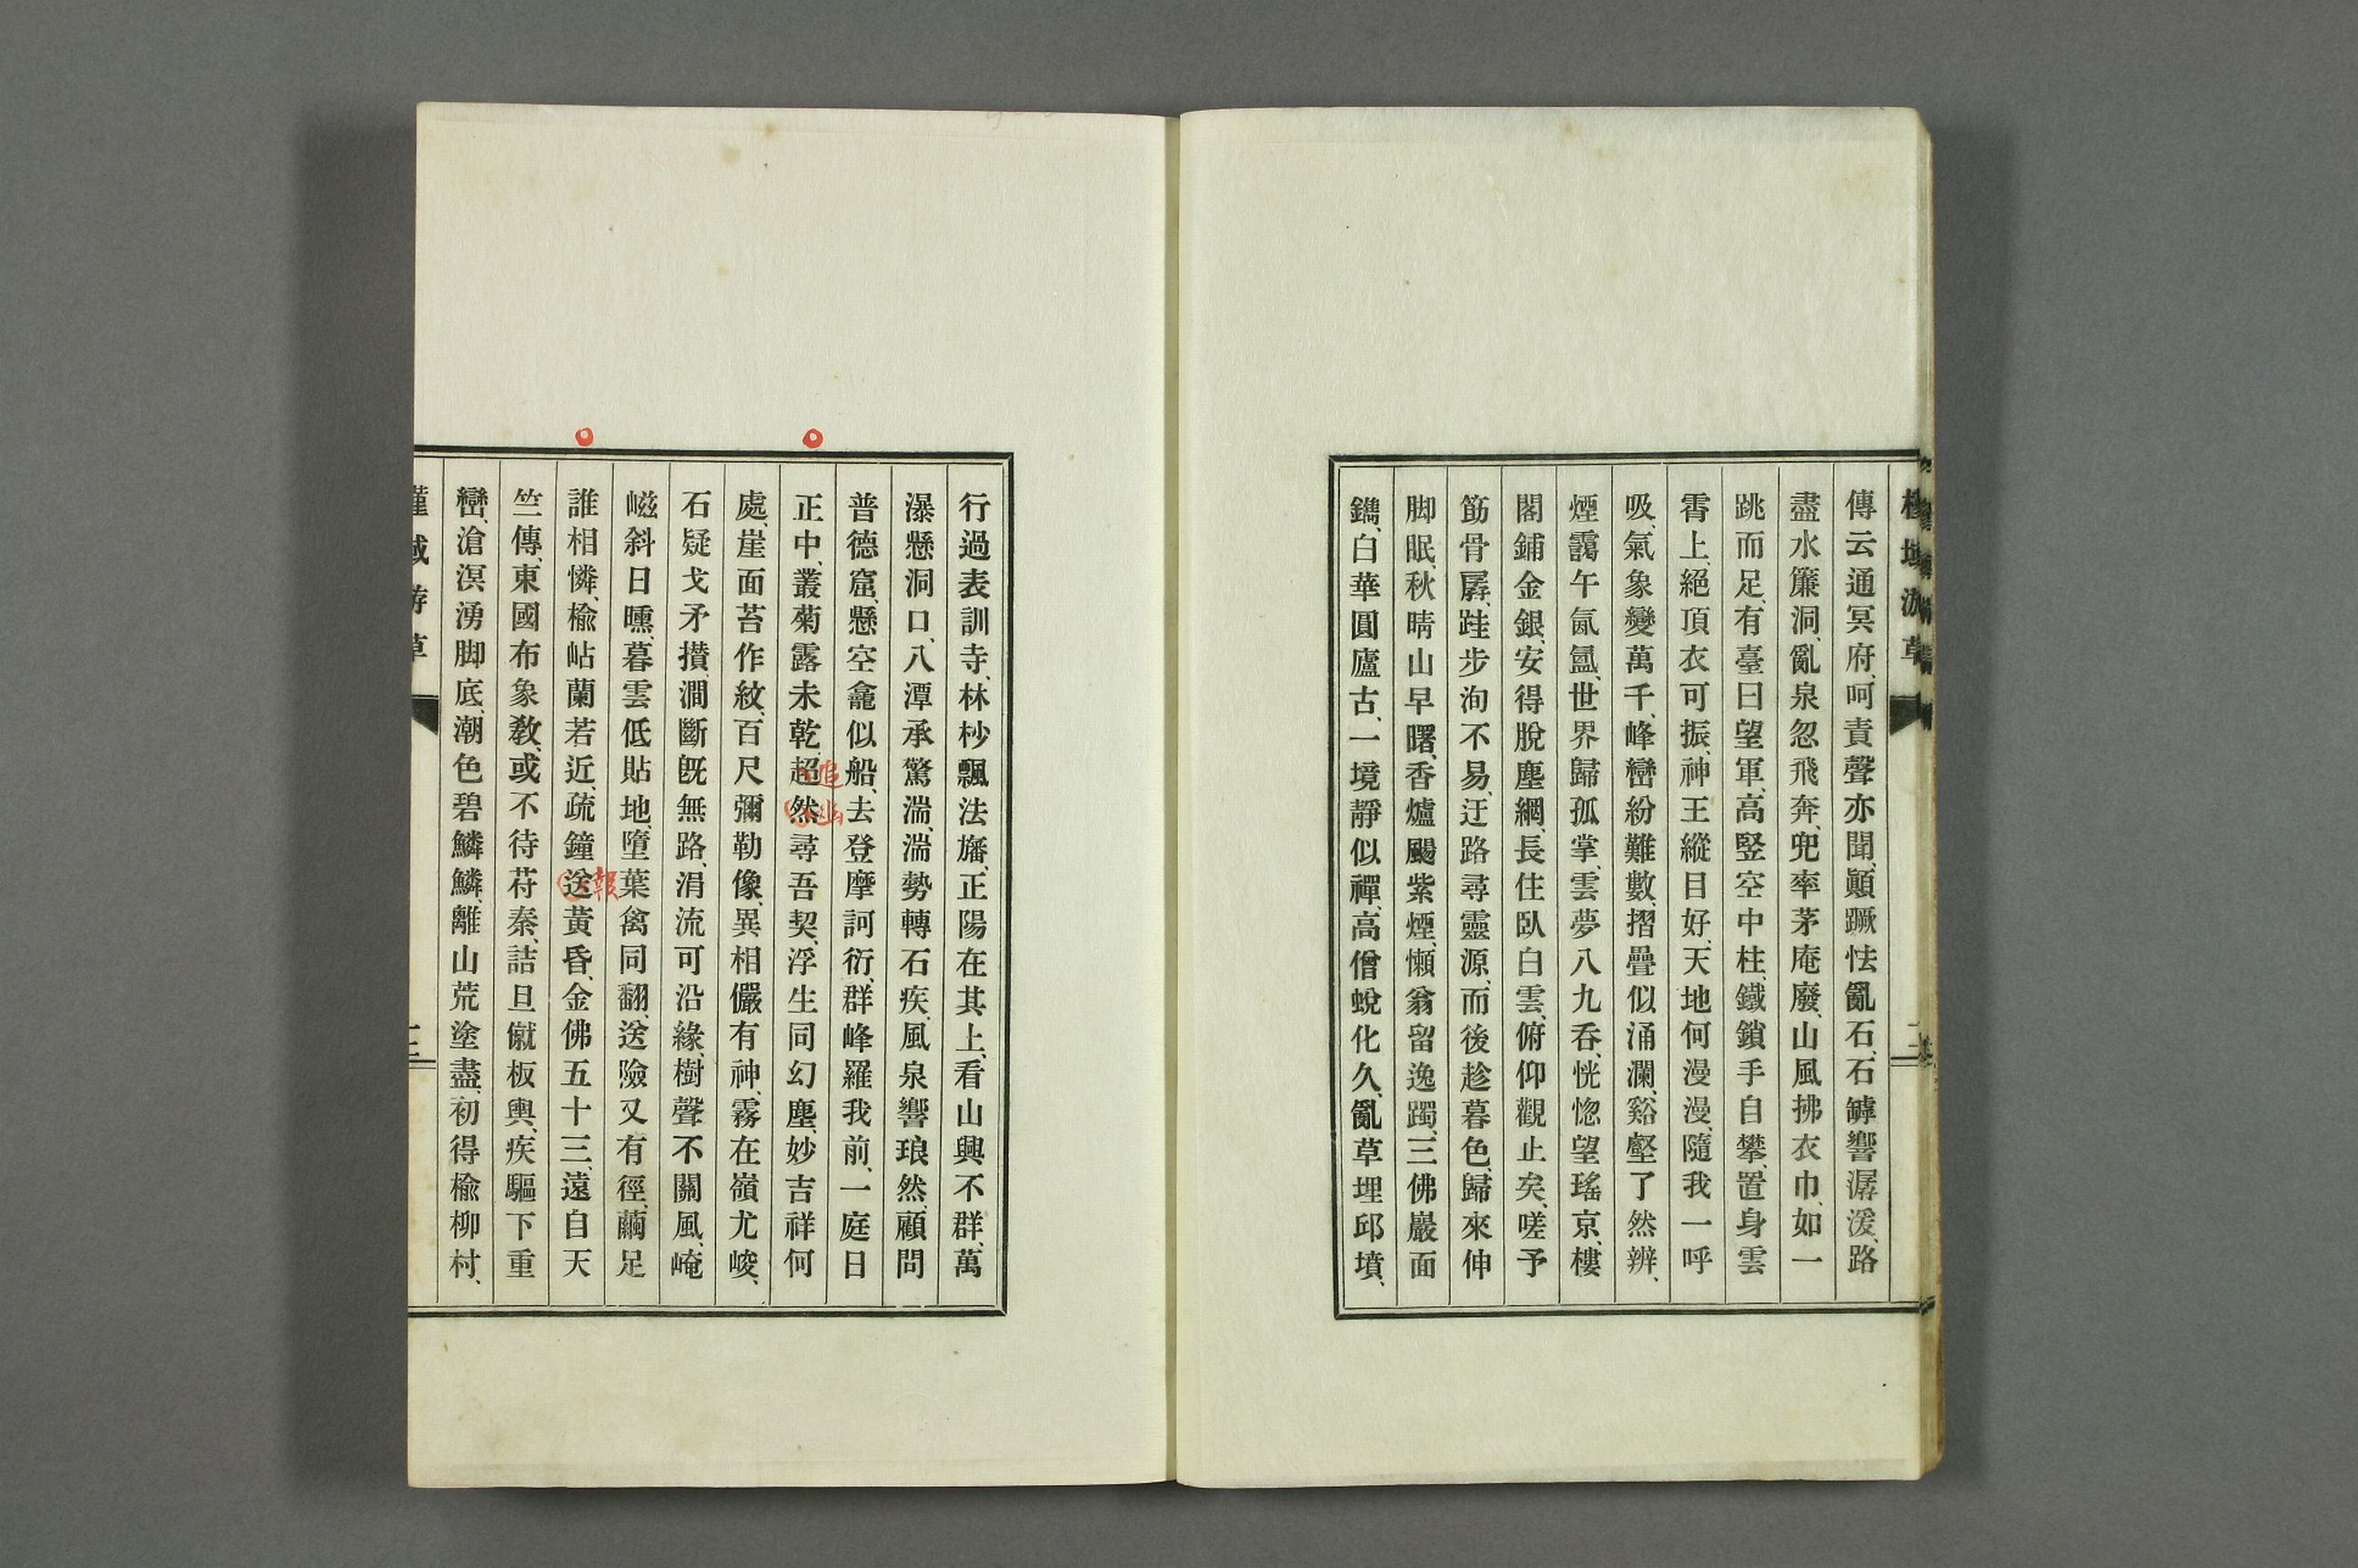 槿域游草
傳云通冥府、呵責聲亦聞、顚蹶怯亂石、石罅響潺湲、路
盡水簾洞、亂泉忽飛奔、兜率茅庵廢、山風拂衣巾、如一
跳而足、有臺曰望軍、高竪空中柱、鐵鎖手自攀、置身雲
霄上、絕頂衣可振、神王縱目好、天地何漫漫、隨我一呼
吸、氣象變萬千、峰巒紛難數、摺疊似涌瀾、谿壑了然辨、
煙靄午氤氳、世界歸孤掌、雲夢八九呑、恍惚望瑤京、樓
閣鋪金銀、安得脫塵網、長住臥白雲、俯仰觀止矣、嗟予
筋骨孱、跬步洵不易、迂路尋靈源、而後趁暮色、歸來伸
脚眠、秋晴山早曙、香爐颺紫煙、懶翁留逸躅、三佛巖面
鐫、白華圓廬古、一境靜似禪、高僧蛻化久、亂草埋邱墳、
行過表訓寺、林杪飄法旛、正陽在其上、看山興不群、萬
瀑懸洞口、八潭承驚湍、湍勢轉石疾、風泉響琅然、顧問
普德窟、懸空龕似船、去登摩訶衍、群峰羅我前、一庭日
正中、叢菊露未乾、超然尋吾契、浮生同幻塵、妙吉祥何
追幽
處、崖面苔作紋、百尺彌勒像、異相儼有神、霧在嶺尤峻、
石疑戈矛攅、澗斷旣無路、涓流可沿緣、樹聲不關風、崦
嵫斜日曛、暮雲低貼地、墮葉禽同翻、送險又有徑、繭足
誰相憐、楡岾蘭若近、疏鐘送黃昏、金佛五十三、遠自天
報
竺傳、東國布象敎、或不待苻秦、詰旦僦板輿、疾驅下重
巒、滄溟湧脚底、潮色碧鱗鱗、離山荒塗盡、初得楡柳村、
槿域游草